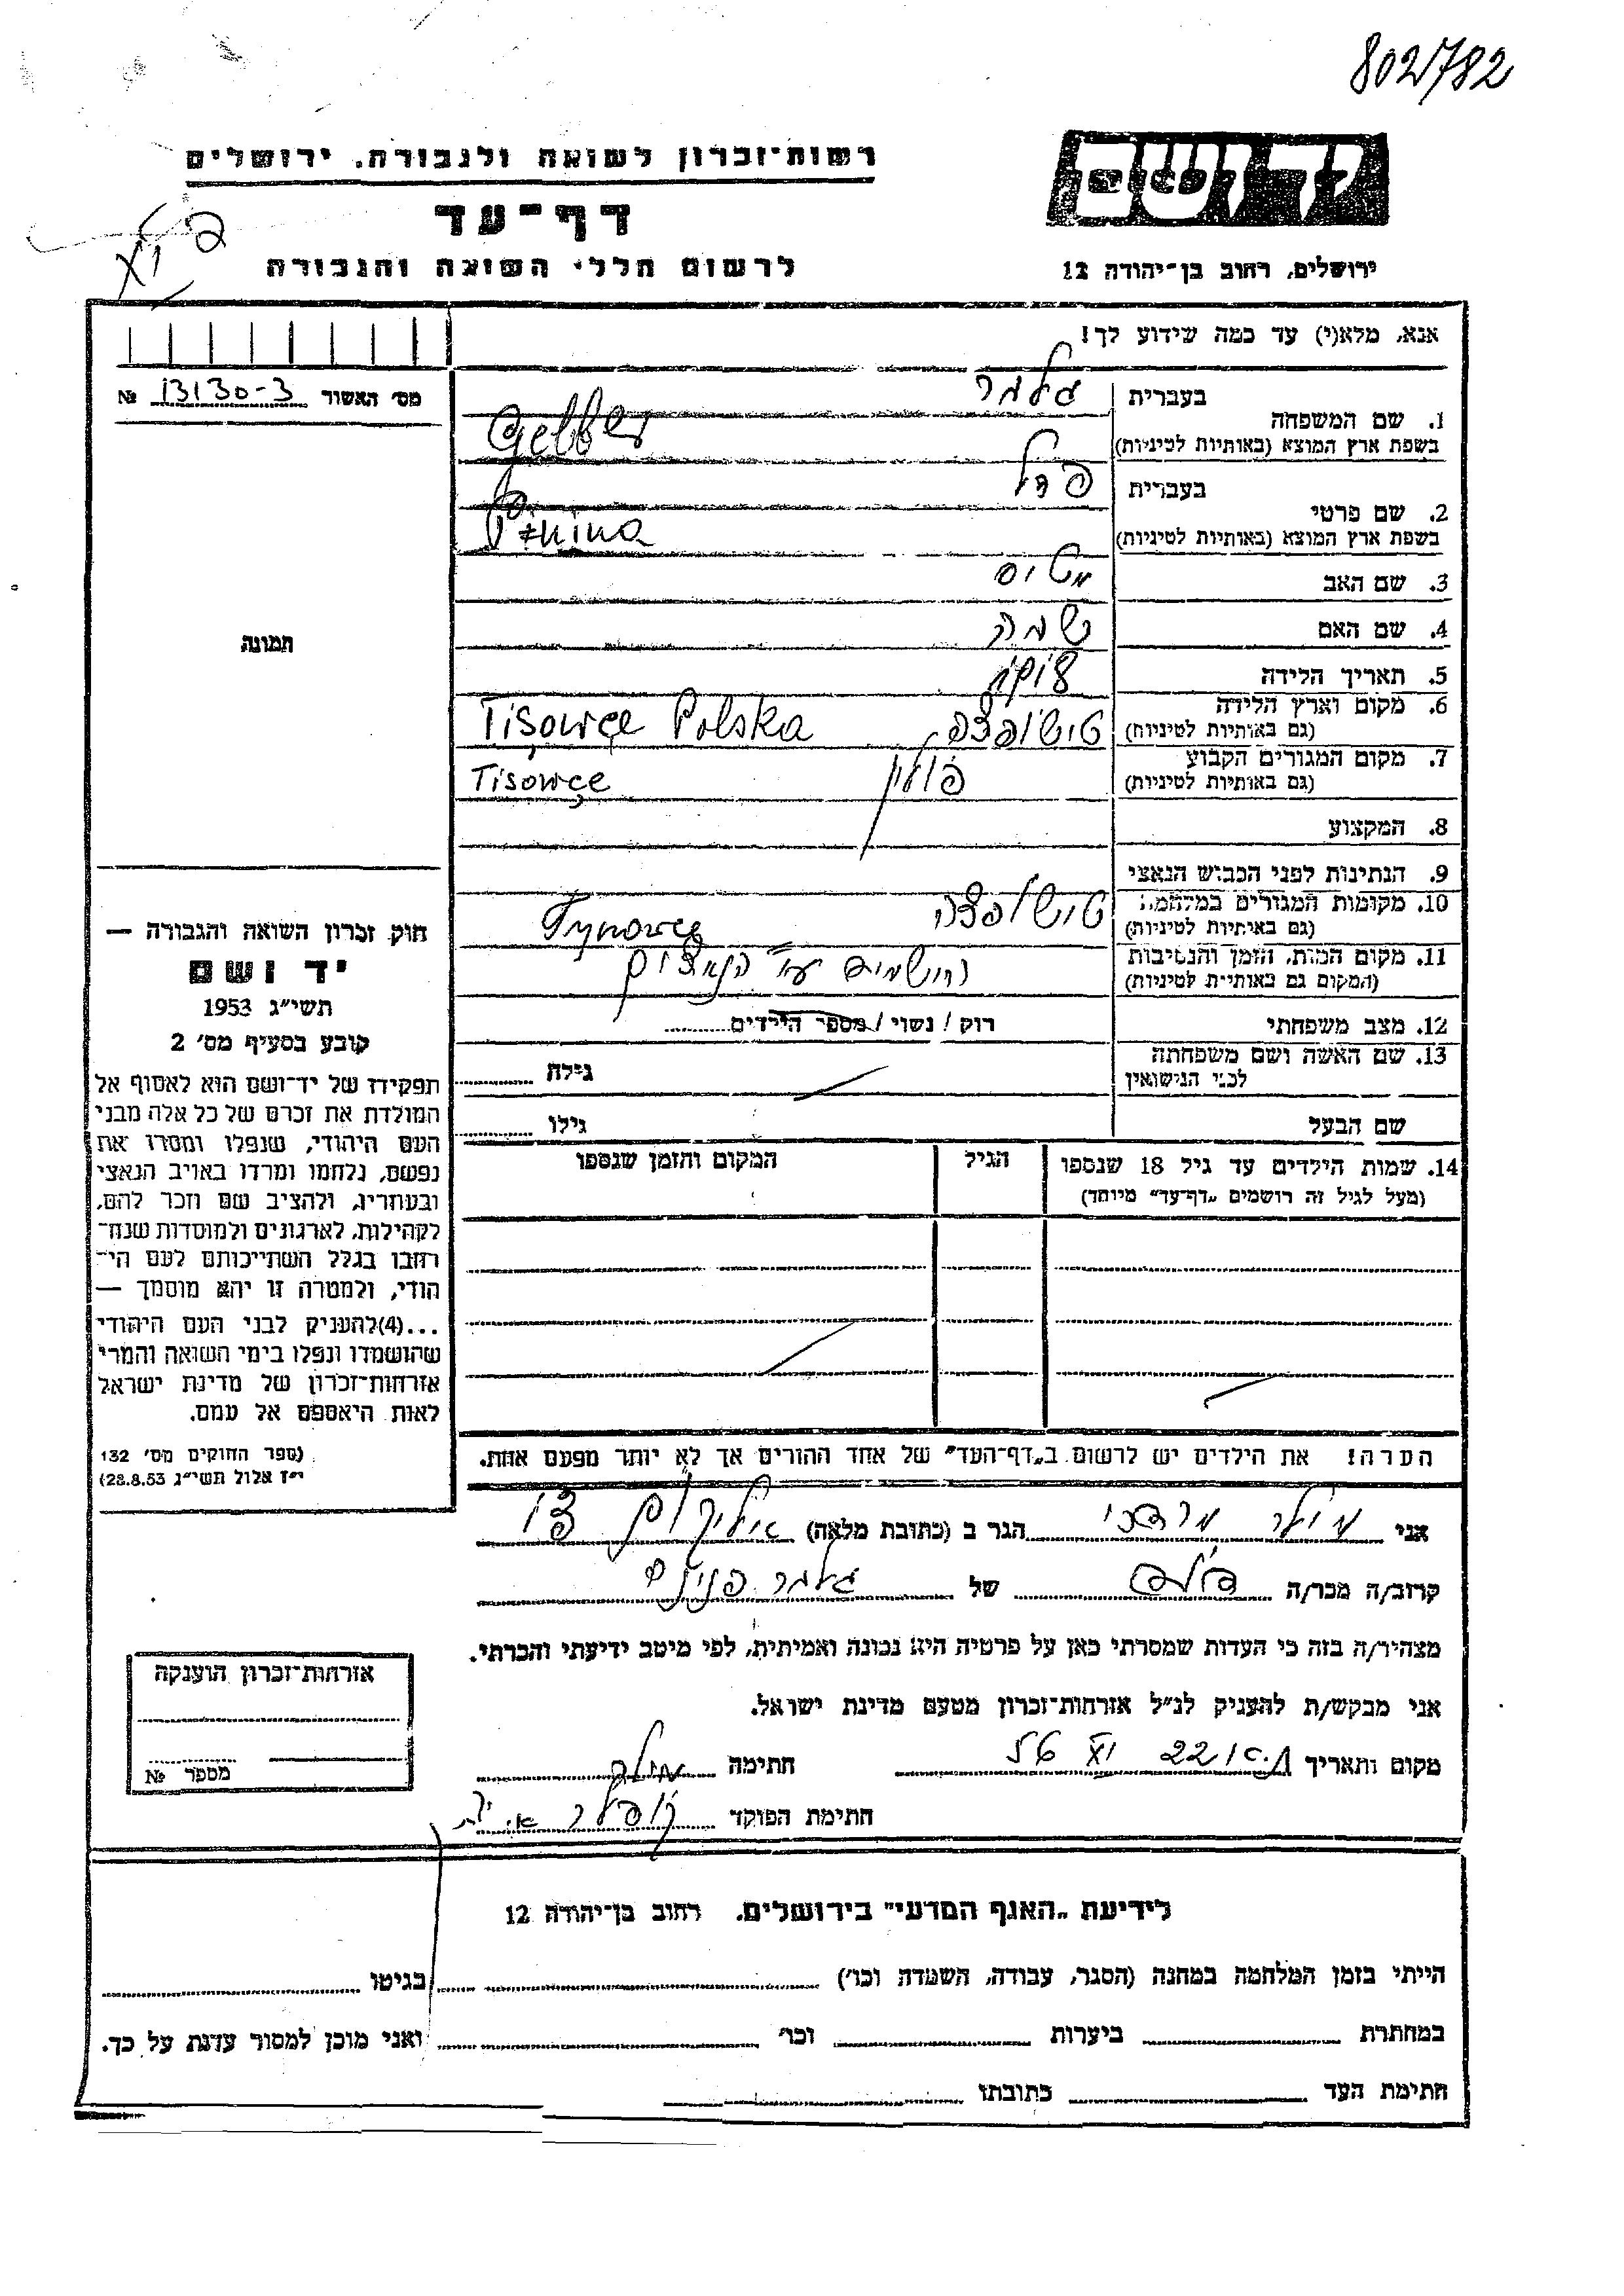 802782
רשות־זכרון לשואה ולגבורה. ירושלים
יד ושם
דף־עד
לרשום חללי השואה והגבורה
ירושלים, רחוב בן־יהודה 12
אנא, מלא(י) עד כמה שידוע לך!
מס׳ האשור 13130-3 №
בעברית גלבר
1. שם המשפחה
בשפת ארץ המוצא (באותיות לטיניות)
בעברית
2. שם פרטי
בשפת ארץ המוצא (באותיות לטיניות)
3. שם האב
4. שם האם
תמונה
5. תאריך הלידה
6. מקום וארץ הלידה Tisowce Polska
(גם באותיות לטיניות)
7. מקום המגורים הקבוע פולין Tisowce
(גם באותיות לטיניות)
8. המקצוע
9. הנתינות לפני הכבוש הנאצי
10. מקומות המגורים במלחמה
(גם באותיות לטיניות)
11. מקום המות, הזמן והנסיבות
(המקום גם באותיות לטיניות)
12. מצב משפחתי רוק / נשוי / מספר הילדים
13. שם האשה ושם משפחתה גילה
לפני הנישואין
שם הבעל גילו
14. שמות הילדים עד גיל 18 שנספו הגיל המקום והזמן שנספו
(מעל לגיל זה רושמים „דף־עד״ מיוחד)
חוק זכרון השואה והגבורה —
יד ושם
תשי״ג 1953
קובע בסעיף מס׳ 2
תפקידו של יד־ושם הוא לאסוף אל
המולדת את זכרם של כל אלה מבני
העם היהודי, שנפלו ומסרו את
נפשם, נלחמו ומרדו באויב הנאצי
ובעוזריו, ולהציב שם וזכר להם,
לקהילות, לארגונים ולמוסדות שנח־
רחבו בגלל השתייכותם לעם הי־
הודי, ולמטרה זו יהא מוסמך —
...(4)להעניק לבני העם היהודי
שהושמדו ונפלו בימי השואה והמרי
אזרחות־זכרון של מדינת ישראל
לאות היאספם אל עמם.
(ספר החוקים מס׳ 132
י״ז אלול תשי״ג 28.8.53)
הערה! את הילדים יש לרשום ב„דף־העד״ של אחד ההורים אך לא יותר מפעם אחת.
אני מרדכי הגר ב (כתובת מלאה)
קרוב/ה מכר/ה של גלבר פנינה
מצהיר/ה בזה כי העדות שמסרתי כאן על פרטיה היא נכונה ואמיתית, לפי מיטב ידיעתי והכרתי.
אני מבקש/ת להעניק לנ״ל אזרחות־זכרון מטעם מדינת ישראל.
מקום ותאריך 22 XI חתימה
חתימת הפוקד
אזרחות־זכרון הוענקה
מספר №
לידיעת „האגף המדעי״ בירושלים. רחוב בן־יהודה 12
הייתי בזמן המלחמה במחנה (הסגר, עבודה, השמדה וכו׳) בגיטו
במחתרת ביערות וכו׳ ואני מוכן למסור עדות על כך.
חתימת העד כתובתו